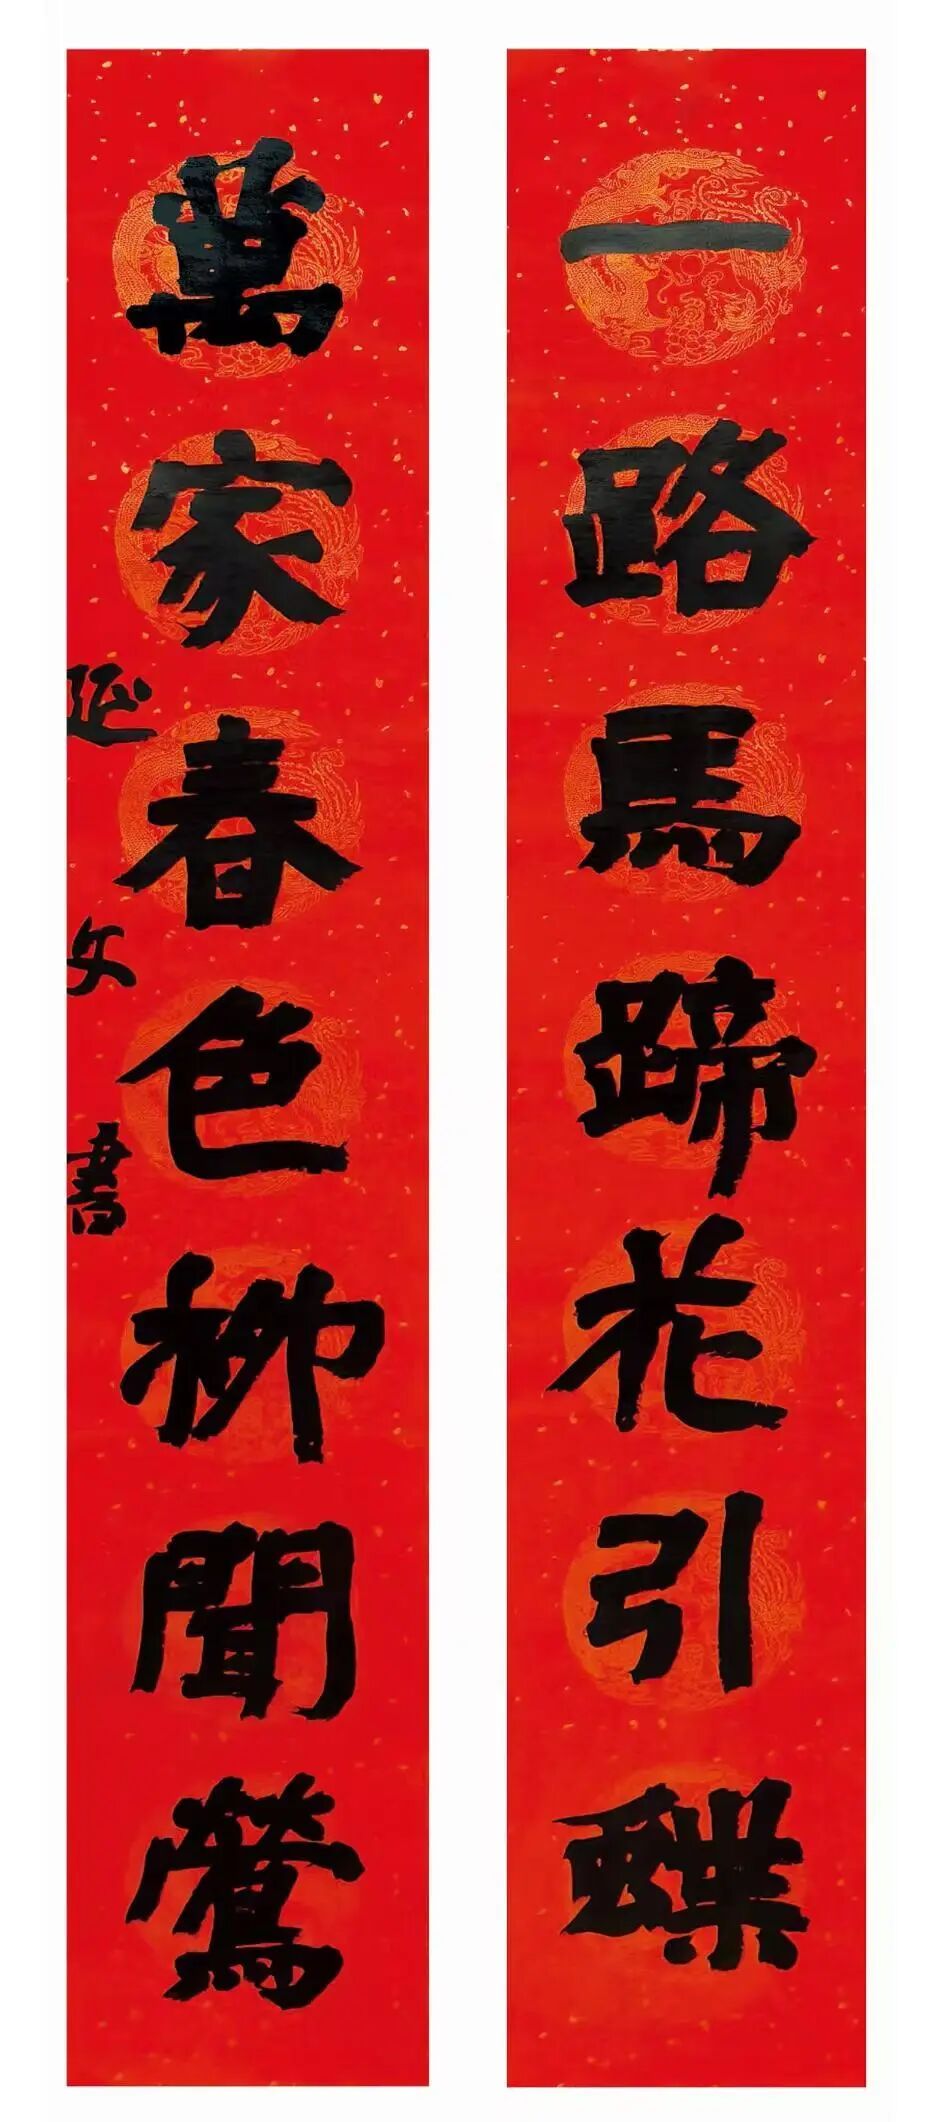 一路馬蹄花引蝶
萬家春色柳聞鶯
延文書